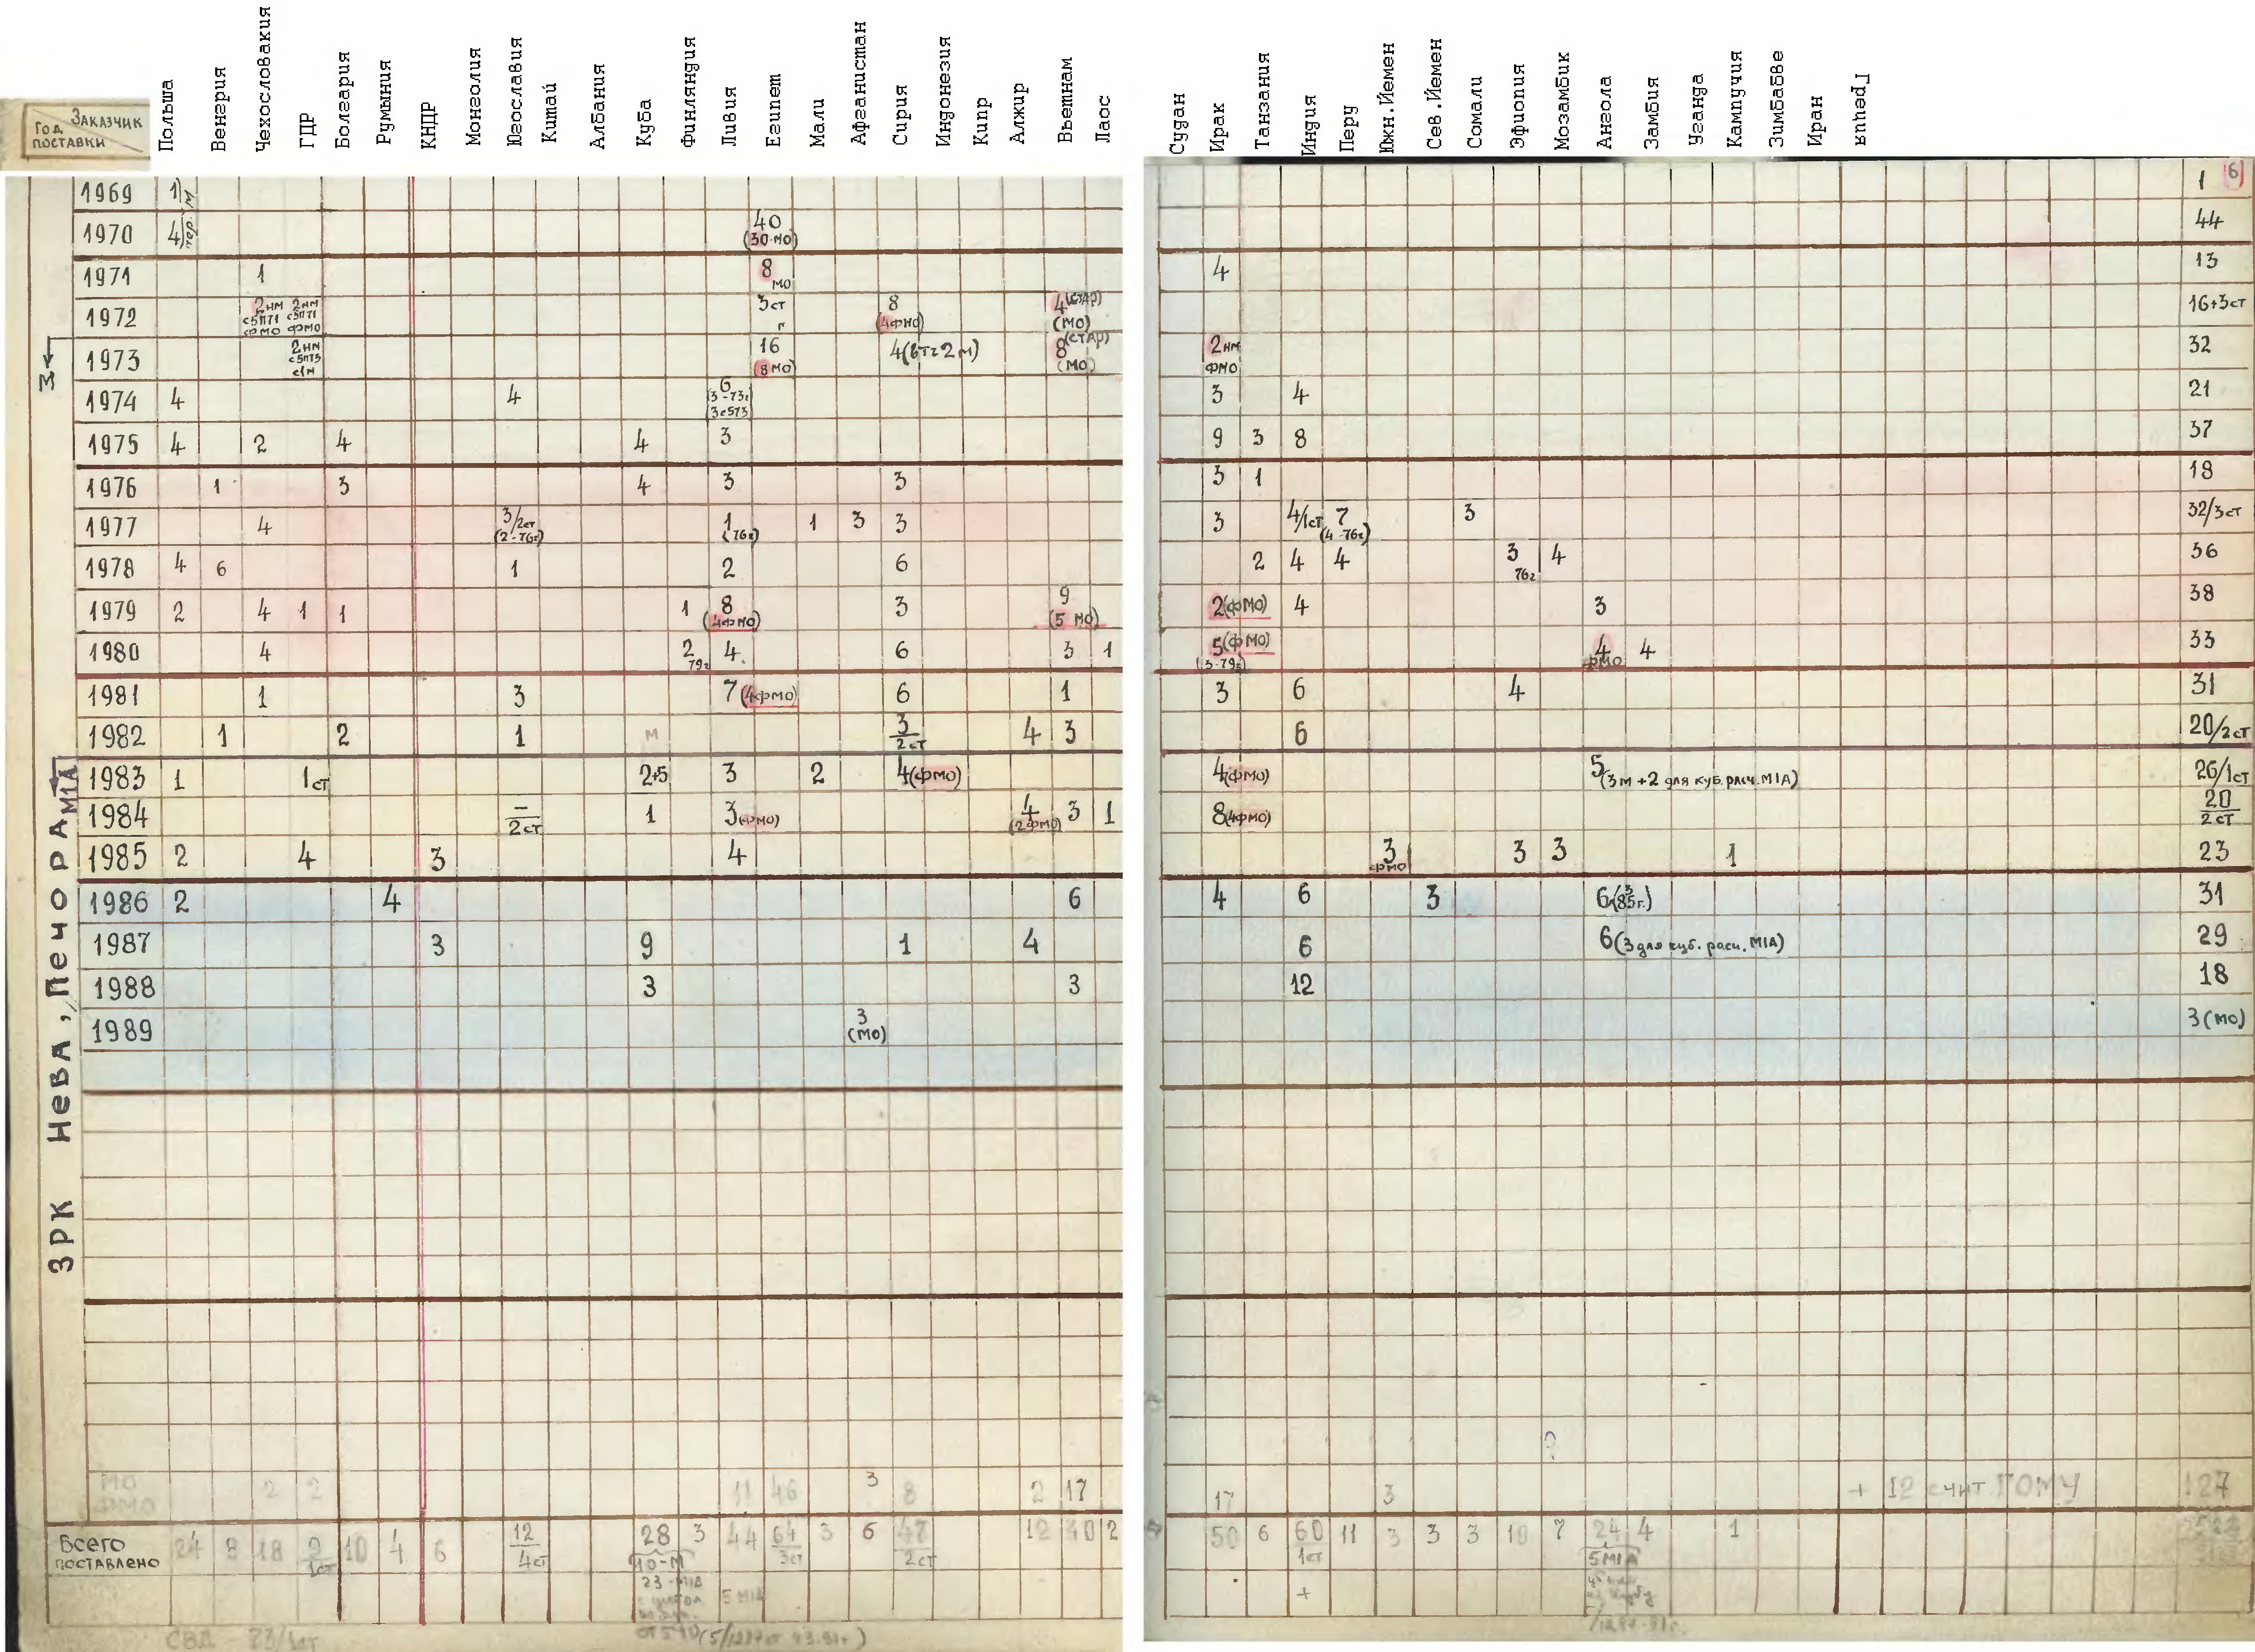 Год поставки Заказчик
Польша Венгрия Чехословакия ГДР Болгария Румыния КНДР Монголия Югославия Китай Албания Куба Финляндия Ливия Египет Мали Афганистан Сирия Индонезия Кипр Алжир Вьетнам Лаос Судан Ирак Танзания Индия Перу Южн.Йемен Сев.Йемен Сомали Эфиопия Мозамбик Ангола Замбия Уганда Кампучия Зимбабве Иран Греция
ЗРК Нева, Печора М1А
3
6
1969 1 М 1
1970 4 тер. 40 (30-МО) 44
1971 1 8 МО 4 13
1972 2нм с5п71 фмо 2нм с5п71 фмо 3ст 8 (4фмо) 4(стар) (МО) 16+3ст
1973 2нм с5п73 16 (8 МО) 4(в тч 2м) 8(стар) (МО) 2нм фмо 32
1974 4 4 6 3-73г 3с573 3 4 21
1975 4 2 4 4 3 9 3 8 37
1976 1 3 4 3 3 3 1 18
1977 4 3/2ст (2-76г) 1 (76г) 1 3 3 3 4/1ст 7 (4-76г) 3 32/3ст
1978 4 6 1 2 6 2 4 4 3 76г 4 36
1979 2 4 1 1 1 8 (4фмо) 3 9 (5 МО) 2(фмо) 4 3 38
1980 4 2 79г 4 6 3 1 5(фмо) (3-79г) 4 фмо 4 33
1981 1 3 7(4фмо) 6 1 3 6 4 31
1982 1 2 1 М 3/2ст 4 3 6 20/2ст
1983 1 1ст 2+5 3 2 4(фмо) 4(фмо) 5(3м+2 для куб. расч. М1А) 26/1ст
1984 –/2ст 1 3(фмо) 4 (2фмо) 3 1 8(4фмо) 20/2ст
1985 2 4 3 4 3 фмо 3 3 1 23
1986 2 4 6 4 6 3 6(3 85г.) 31
1987 3 9 1 4 6 6(3 для куб. расч. М1А) 29
1988 3 3 12 18
1989 3 (МО) 3(МО)
?
МО ФМО 2 2 11 46 3 8 2 17 17 3 + 12 счит ГОМУ 127
Всего поставлено 24 8 18 9/1ст 10 4 6 12/4ст 28 3 44 64/3ст 3 6 47/2ст 12 40 2 50 6 60/1ст 11 3 3 3 10 7 24 4 1
10-М 5М1А
23-М1А 5 М1А +